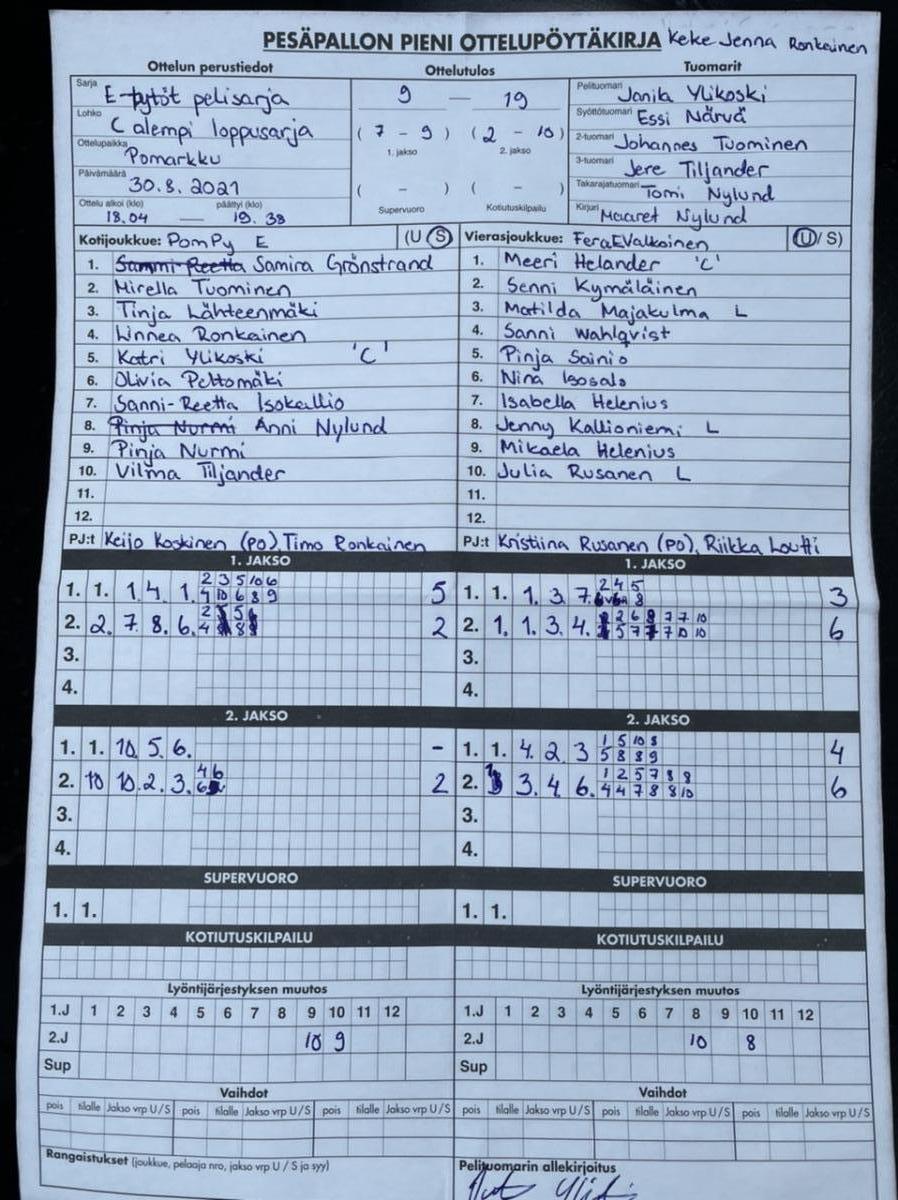 PESÄPALLON PIENI OTTELUPÖYTÄKIRJA Keke Jenna Ronkainen
Ottelun perustiedot
Sarja E-tytöt pelisarja
Lohko C alempi loppusarja
Ottelupaikka Pomarkku
Päivämäärä 30.8.2021
Ottelu alkoi (klo) päättyi (klo)
18.04 — 19.38
Ottelutulos
9 — 19
(7 - 9) (2 - 10)
1. jakso 2. jakso
( - ) ( - )
Supervuoro Kotiutuskilpailu
Tuomarit
Pelituomari Janika Ylikoski
Syöttötuomari Essi Närvä
2-tuomari Johannes Tuominen
3-tuomari Jere Tiljander
Takarajatuomari Tomi Nylund
Kirjuri Maaret Nylund
Kotijoukkue: PomPy E (U S)
1. Sammi-Reetta Samira Grönstrand
2. Mirella Tuominen
3. Tinja Lähteenmäki
4. Linnea Ronkainen
5. Katri Ylikoski 'C'
6. Olivia Peltomäki
7. Sanni-Reetta Isokallio
8. Pinja Nurmi Anni Nylund
9. Pinja Nurmi
10. Vilma Tiljander
11.
12.
PJ:t Keijo Koskinen (PO), Timo Ronkainen
Vierasjoukkue: FeraEValkoinen (U/S)
1. Meeri Helander 'C'
2. Senni Kymäläinen
3. Matilda Majakulma L
4. Sanni Wahlqvist
5. Pinja Sainio
6. Nina Isosalo
7. Isabella Helenius
8. Jenny Kallioniemi L
9. Mikaela Helenius
10. Julia Rusanen L
11.
12.
PJ:t Kristiina Rusanen (PO), Riikka Loutti
1. JAKSO
1. 1. 1. 4. 1. 2 3 5 10 6
4 10 6 8 9 5
2. 2. 7. 8. 6. 2
4
3.
4.
1. JAKSO
1. 1. 1. 3. 7. 2 4 5
8 3
2. 1. 1. 3. 4. 2 6 8 7 7 10
5 7 7 7 10 10 6
3.
4.
2. JAKSO
1. 1. 10. 5. 6. -
2. 10 10. 2. 3. 4 6
6 2
3.
4.
2. JAKSO
1. 1. 4. 2. 3 1 5 10 8
5 8 8 9 4
2. 3. 4. 6. 1 2 5 7 8 8
4 4 7 8 8 10 6
3.
4.
SUPERVUORO
1. 1.
SUPERVUORO
1. 1.
KOTIUTUSKILPAILU
KOTIUTUSKILPAILU
Lyöntijärjestyksen muutos
1.J 1 2 3 4 5 6 7 8 9 10 11 12
2.J 10 9
Sup
Lyöntijärjestyksen muutos
1.J 1 2 3 4 5 6 7 8 9 10 11 12
2.J 10 8
Sup
Vaihdot
pois tilalle Jakso vrp U/S pois tilalle Jakso vrp U/S pois tilalle Jakso vrp U/S
Vaihdot
pois tilalle Jakso vrp U/S pois tilalle Jakso vrp U/S pois tilalle Jakso vrp U/S
Rangaistukset (joukkue, pelaaja nro, jakso vrp U/S ja syy)
Pelituomarin allekirjoitus